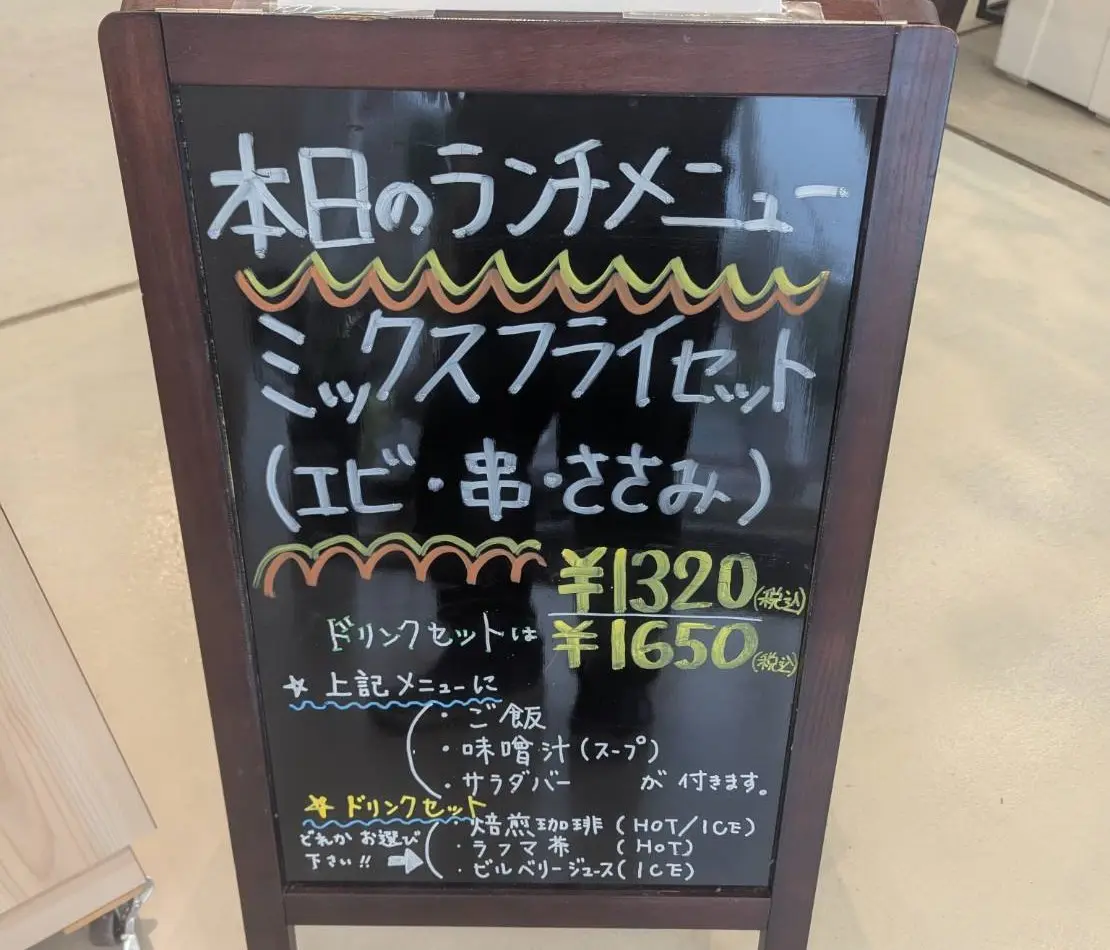 本日のランチメニュー
ミックスフライセット
(エビ・串・ささみ)
¥1320(税込)
ドリンクセットは ¥1650(税込)
☆ 上記メニューに
・ご飯
・味噌汁(スープ)
・サラダバー が付きます。
☆ ドリンクセット
どれかお選び
下さい!! ➡
・焙煎珈琲 (HOT/ICE)
・ラフマ茶 (HOT)
・ビルベリージュース(ICE)